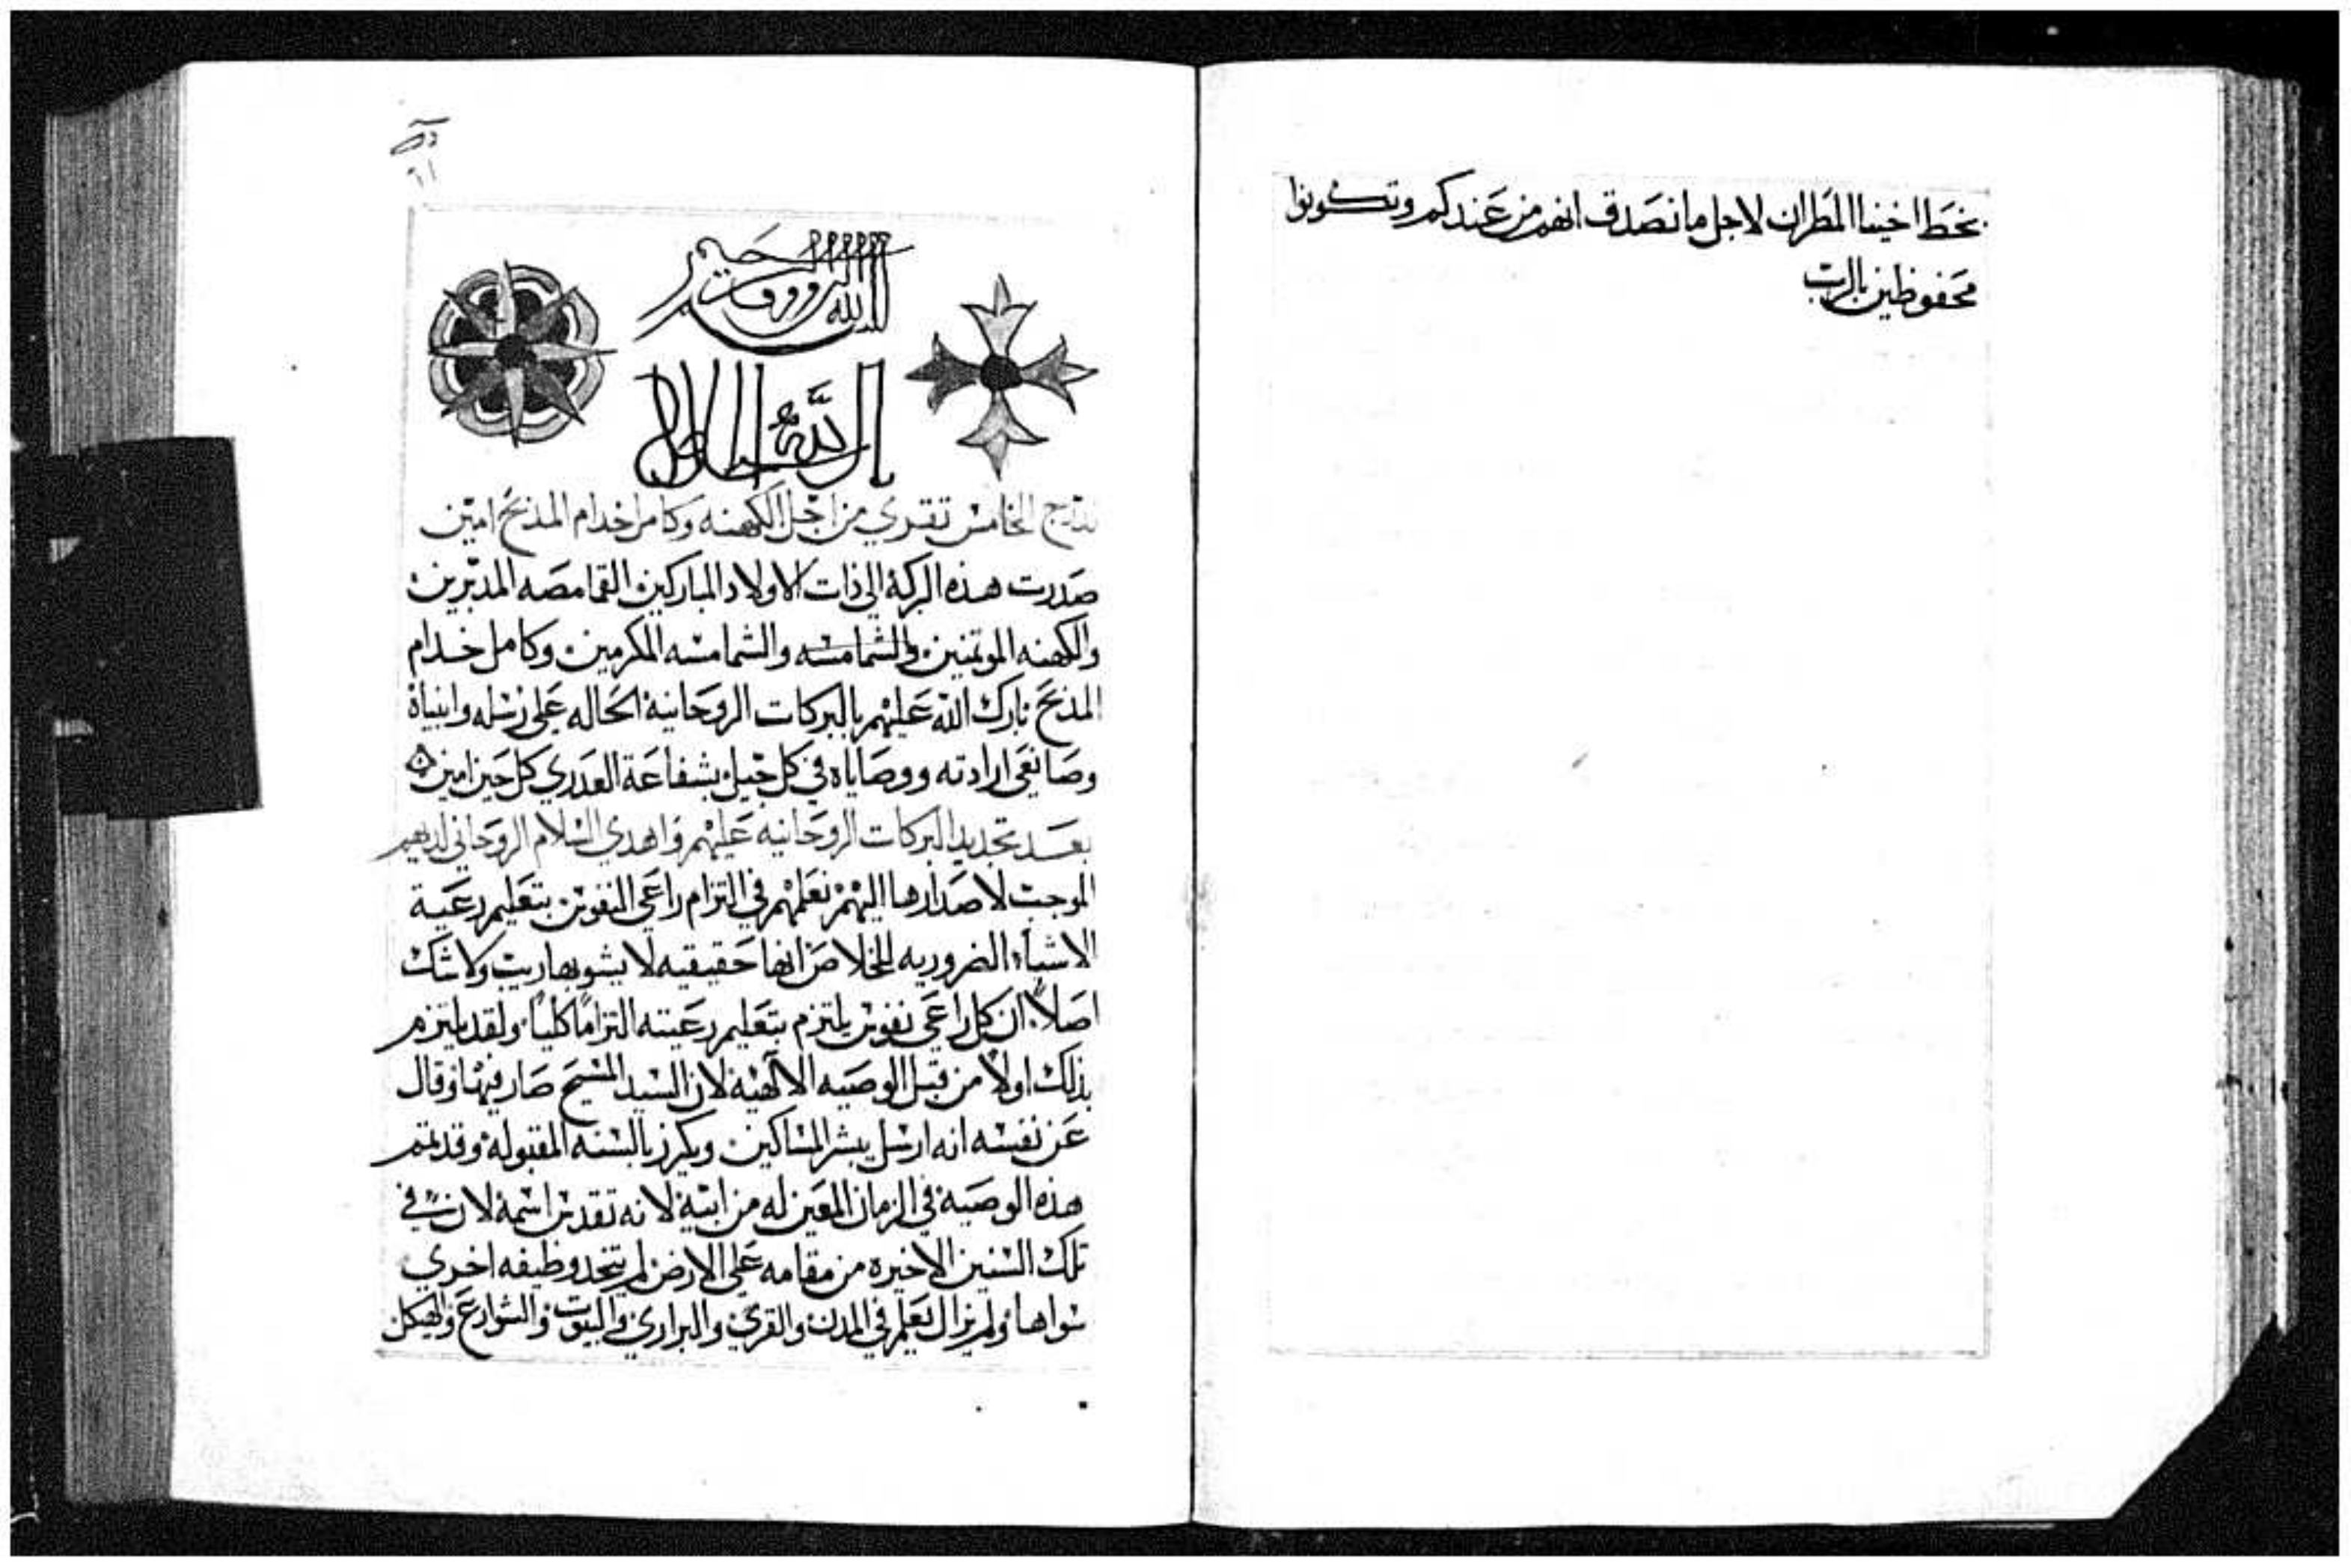 بخط اخينا المطران لاجل ما نصدق انهم من عندكم وتكونوا
محفوظين بالرب
٦١
الله الرووف
الخامس تقري من اجل الكهنه وكامل خدام المذبح امين
صدرت هذه البركة الي ذات الاولاد المباركين القمامصه المدبرين
والكهنه الموتمنين والشمامسه والشمامسه المكرمين وكامل خدام
المذبح بارك الله عليهم بالبركات الروحانية الحاله علي رسله وانبياة
وصانعي ارادته ووصاياه في كل جيل بشفاعة العدري كل حين امين
بعد تجديد البركات الروحانيه عليهم واهدي السلام الروحاني لديهم
الموجب لاصدارها اليهم نعلمهم في التزام راعي النفوس بتعليم رعية
الاشياء الضروريه للخلاص انها حقيقيه لا يشوبها ريب ولا شك
اصلاً ان كل راعي نفوس يلتزم بتعليم رعيته التزاماً كلياً ولقد يلتزم
بذلك اولاً من قبل الوصيه الالهية لان السيد المسيح صار فيها وقال
عن نفسه انه ارسل يبشر المساكين ويكرز بالسنه المقبولة وقد تمم
هذه الوصية في الزمان المعين له من ابية لانه تقدس اسمة لان في
تلك السنين الاخيره من مقامه علي الارض لم يتخد وظيفه اخري
سواها ولم يزال يعلم في المدن والقري والبراري والبيوت والشوارع والهيكل